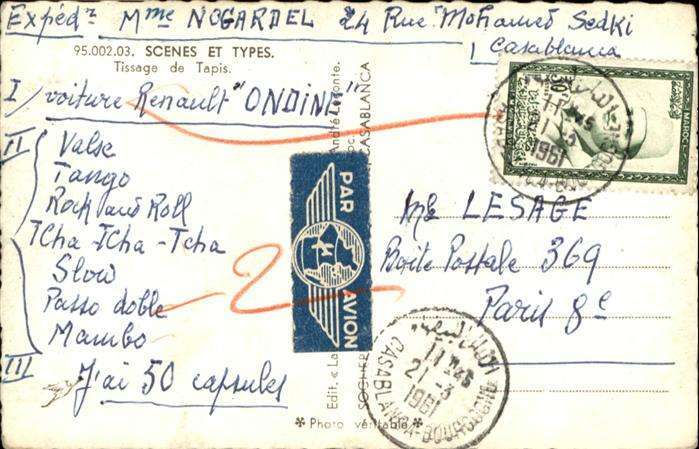 Expédr Mme NOGARDEL 24 Rue Mohamed Sedki
Casablanca
95.002.03. SCENES ET TYPES.
Tissage de Tapis.
I/ voiture Renault "ONDINE"
II Valse
Tango
Rock and Roll
Tcha-Tcha-Tcha
Slow
Passo doble
Mambo
III J'ai 50 capsules
PAR AVION
Edit. « La
André
CASABLANCA
* Photo véritable *
LESAGE
Boite Postale 369
Paris 8e
MAROC
30
11H45
21-3
1961
11H45
21-3
1961
CASABLANCA-BOURGOGNE